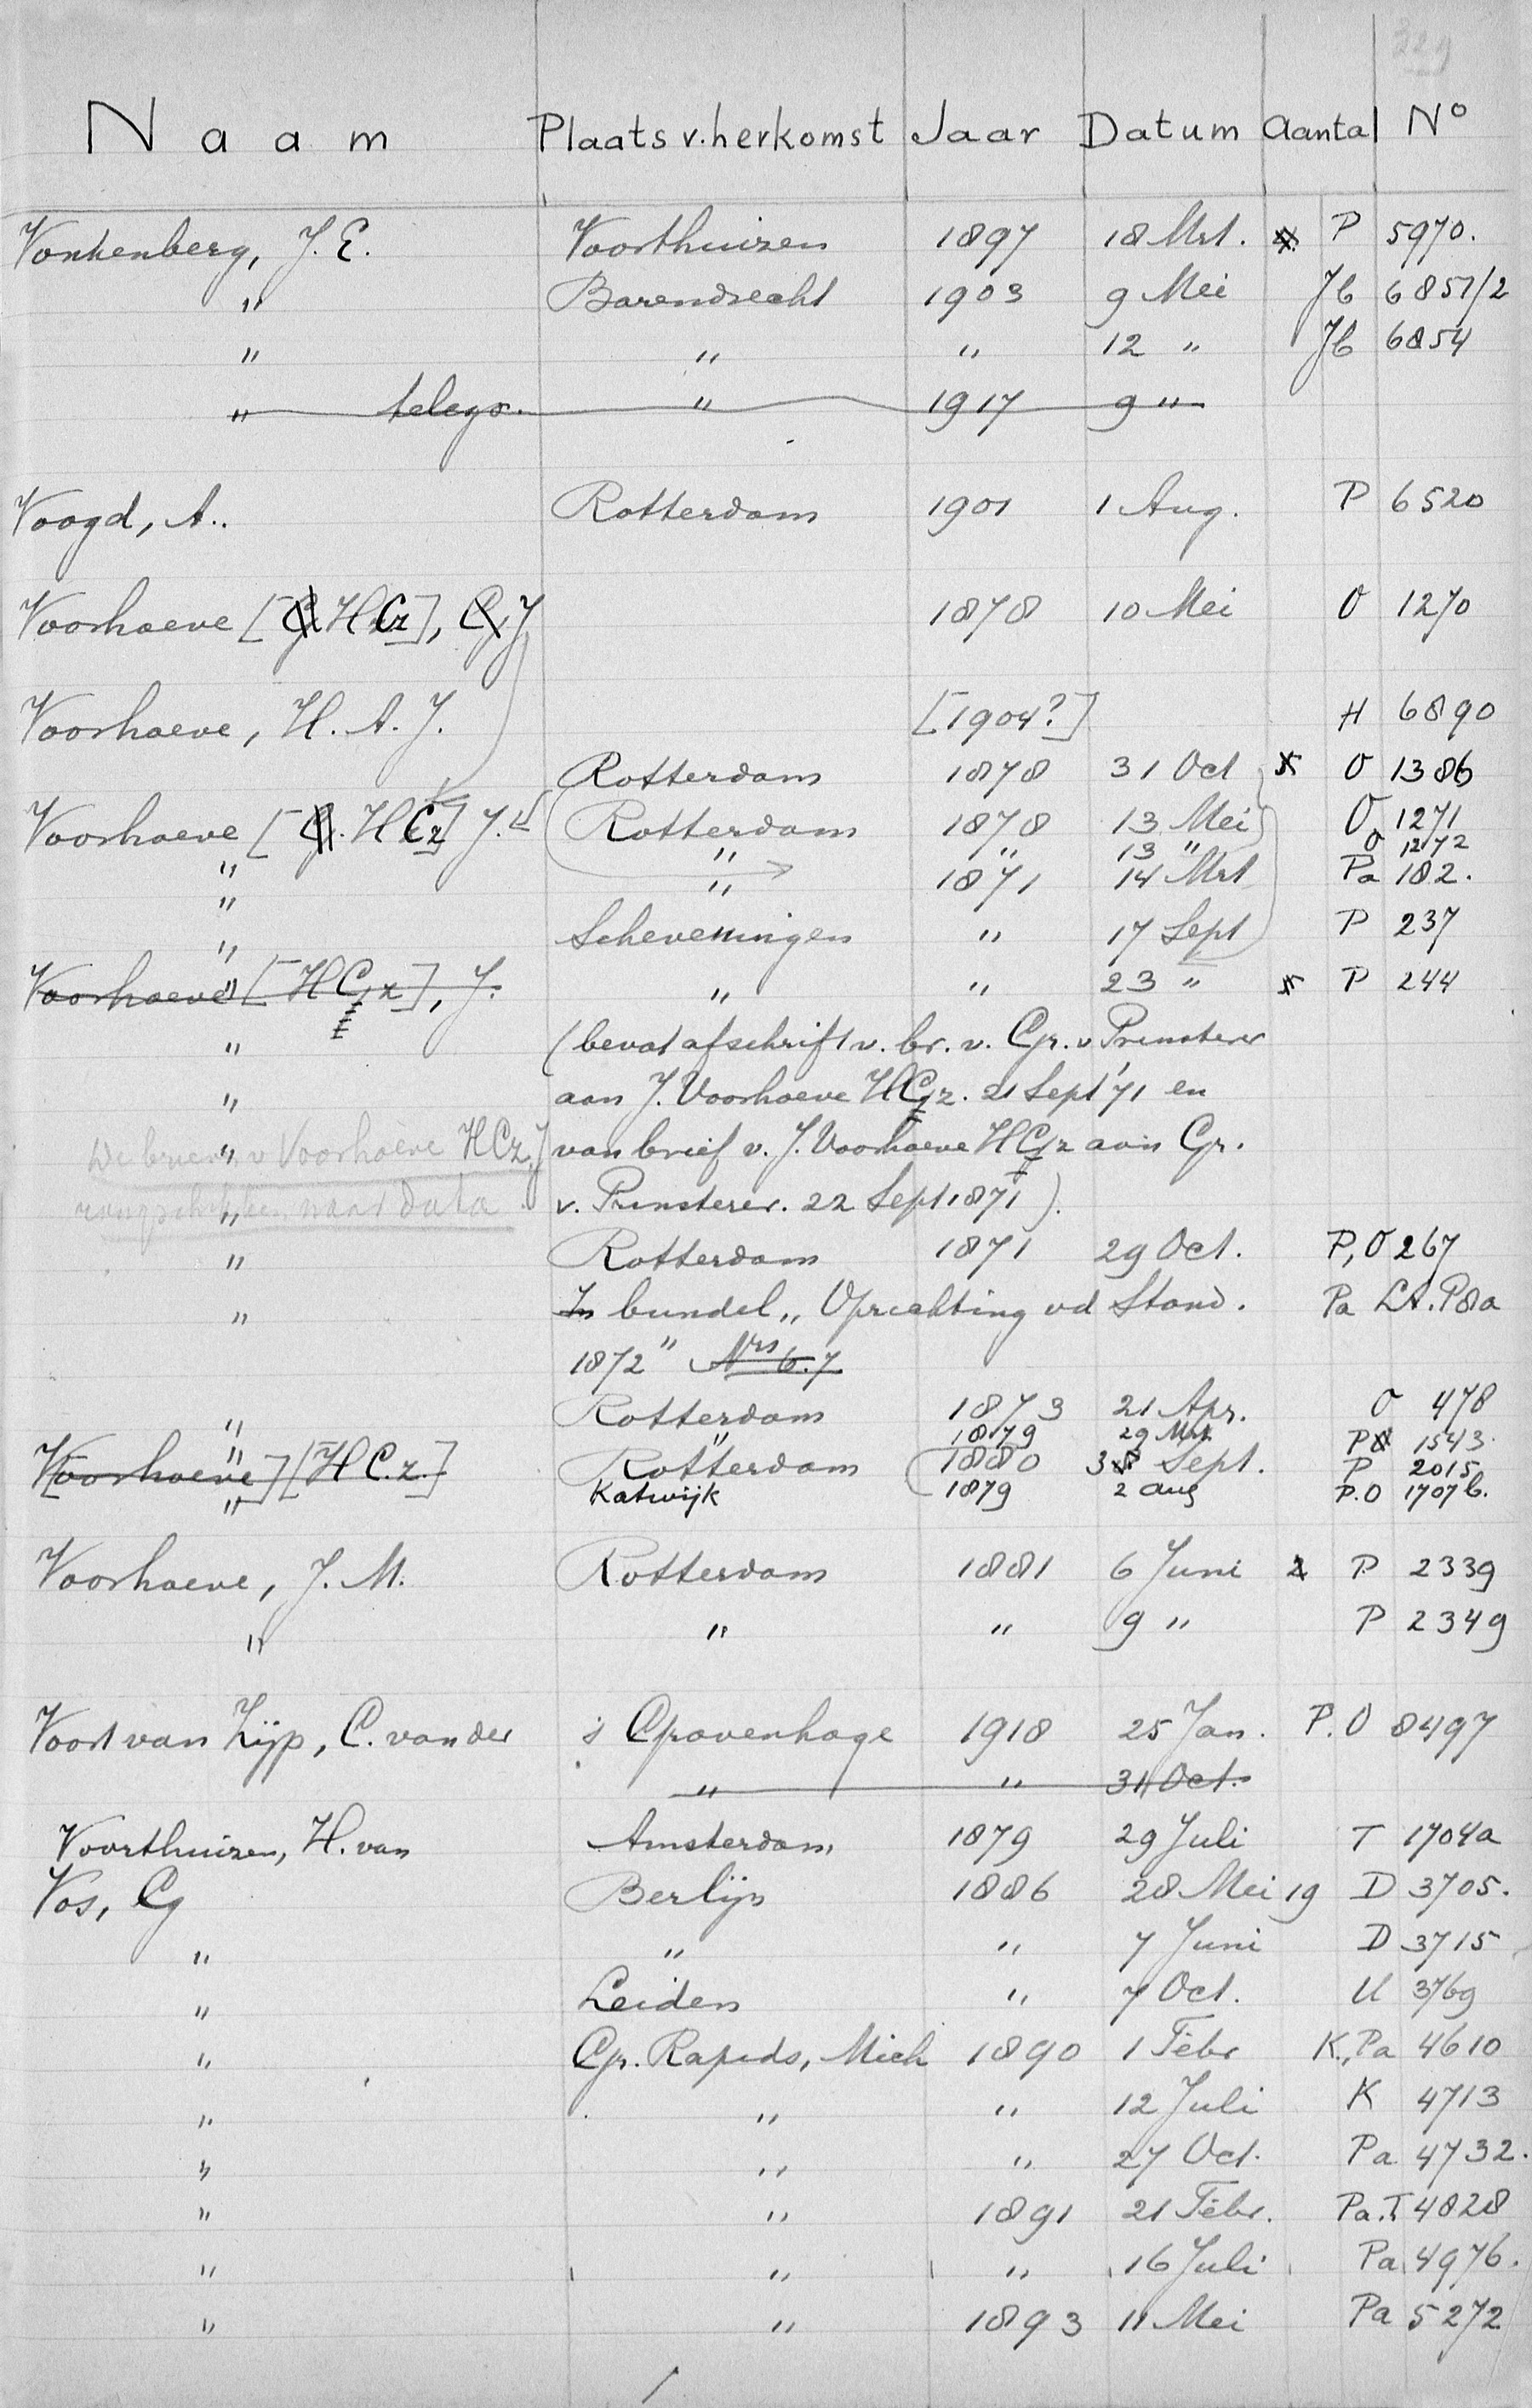 229
Naam Plaats v. herkomst Jaar Datum Aantal Nº
Vonkenberg, J. E. Voorthuizen 1897 18 Mrt. P 5970.
" Barendrecht 1903 9 Mei Jb 6851/2
" " " 12 " Jb 6854
" telegr. " 1917 9 "
Voogd, A.. Rotterdam 1901 1 Aug. P 6520
Voorhoeve [HCz], J 1878 10 Mei O 1270
Voorhoeve, H. A. J. [1904?] H 6890
Rotterdam 1878 31 Oct O 1386
Voorhoeve [HCz] J. Rotterdam 1878 13 Mei O 1271
" " " 13 " O 1272
" " 1871 14 Mrt Pa 182.
" Scheveningen " 17 Sept P 237
Voorhoeve [HGz], J. " " 23 " P 244
" (bevat afschrift v. br. v. Gr. v Prinsterer
" aan J. Voorhoeve HCz. 21 Sept '71 en
De brieven v Voorhoeve HCz. J " van brief v. J. Voorhoeve HCz aan Gr.
rangschikken naar data " v. Prinsterer. 22 Sept 1871).
" Rotterdam 1871 29 Oct. P, O 267
" In bundel „Oprichting vd Stand. Pa LA. P8a
1872" Nrs 6.7
" Rotterdam 1873 21 Apr. O 478
" " 1879 29 Mrt. P 1543.
Voorhoeve] [HC.z.] Rotterdam 1880 3 Sept. P 2015
" Katwijk 1879 2 aug P.O 1707b.
Voorhoeve, J. M. Rotterdam 1881 6 Juni 2 P 2339
" " " 9 " P 2349
Voort van Zijp, C. van der 's Gravenhage 1918 25 Jan. P.O 8497
" " 31 Oct.
Voorthuizen, H. van Amsterdam 1879 29 Juli T 1704a
Vos, G Berlijn 1886 28 Mei 19 D 3705.
" " " 7 Juni D 3715
" Leiden " 7 Oct. U 3769
" Gr. Rapids, Mich 1890 1 Febr K., Pa 4610
" " " 12 Juli K 4713
" " " 27 Oct. Pa 4732.
" " 1891 21 Febr. Pa.T 4828
" " " 16 Juli Pa 4976.
" " 1893 11 Mei Pa 5272